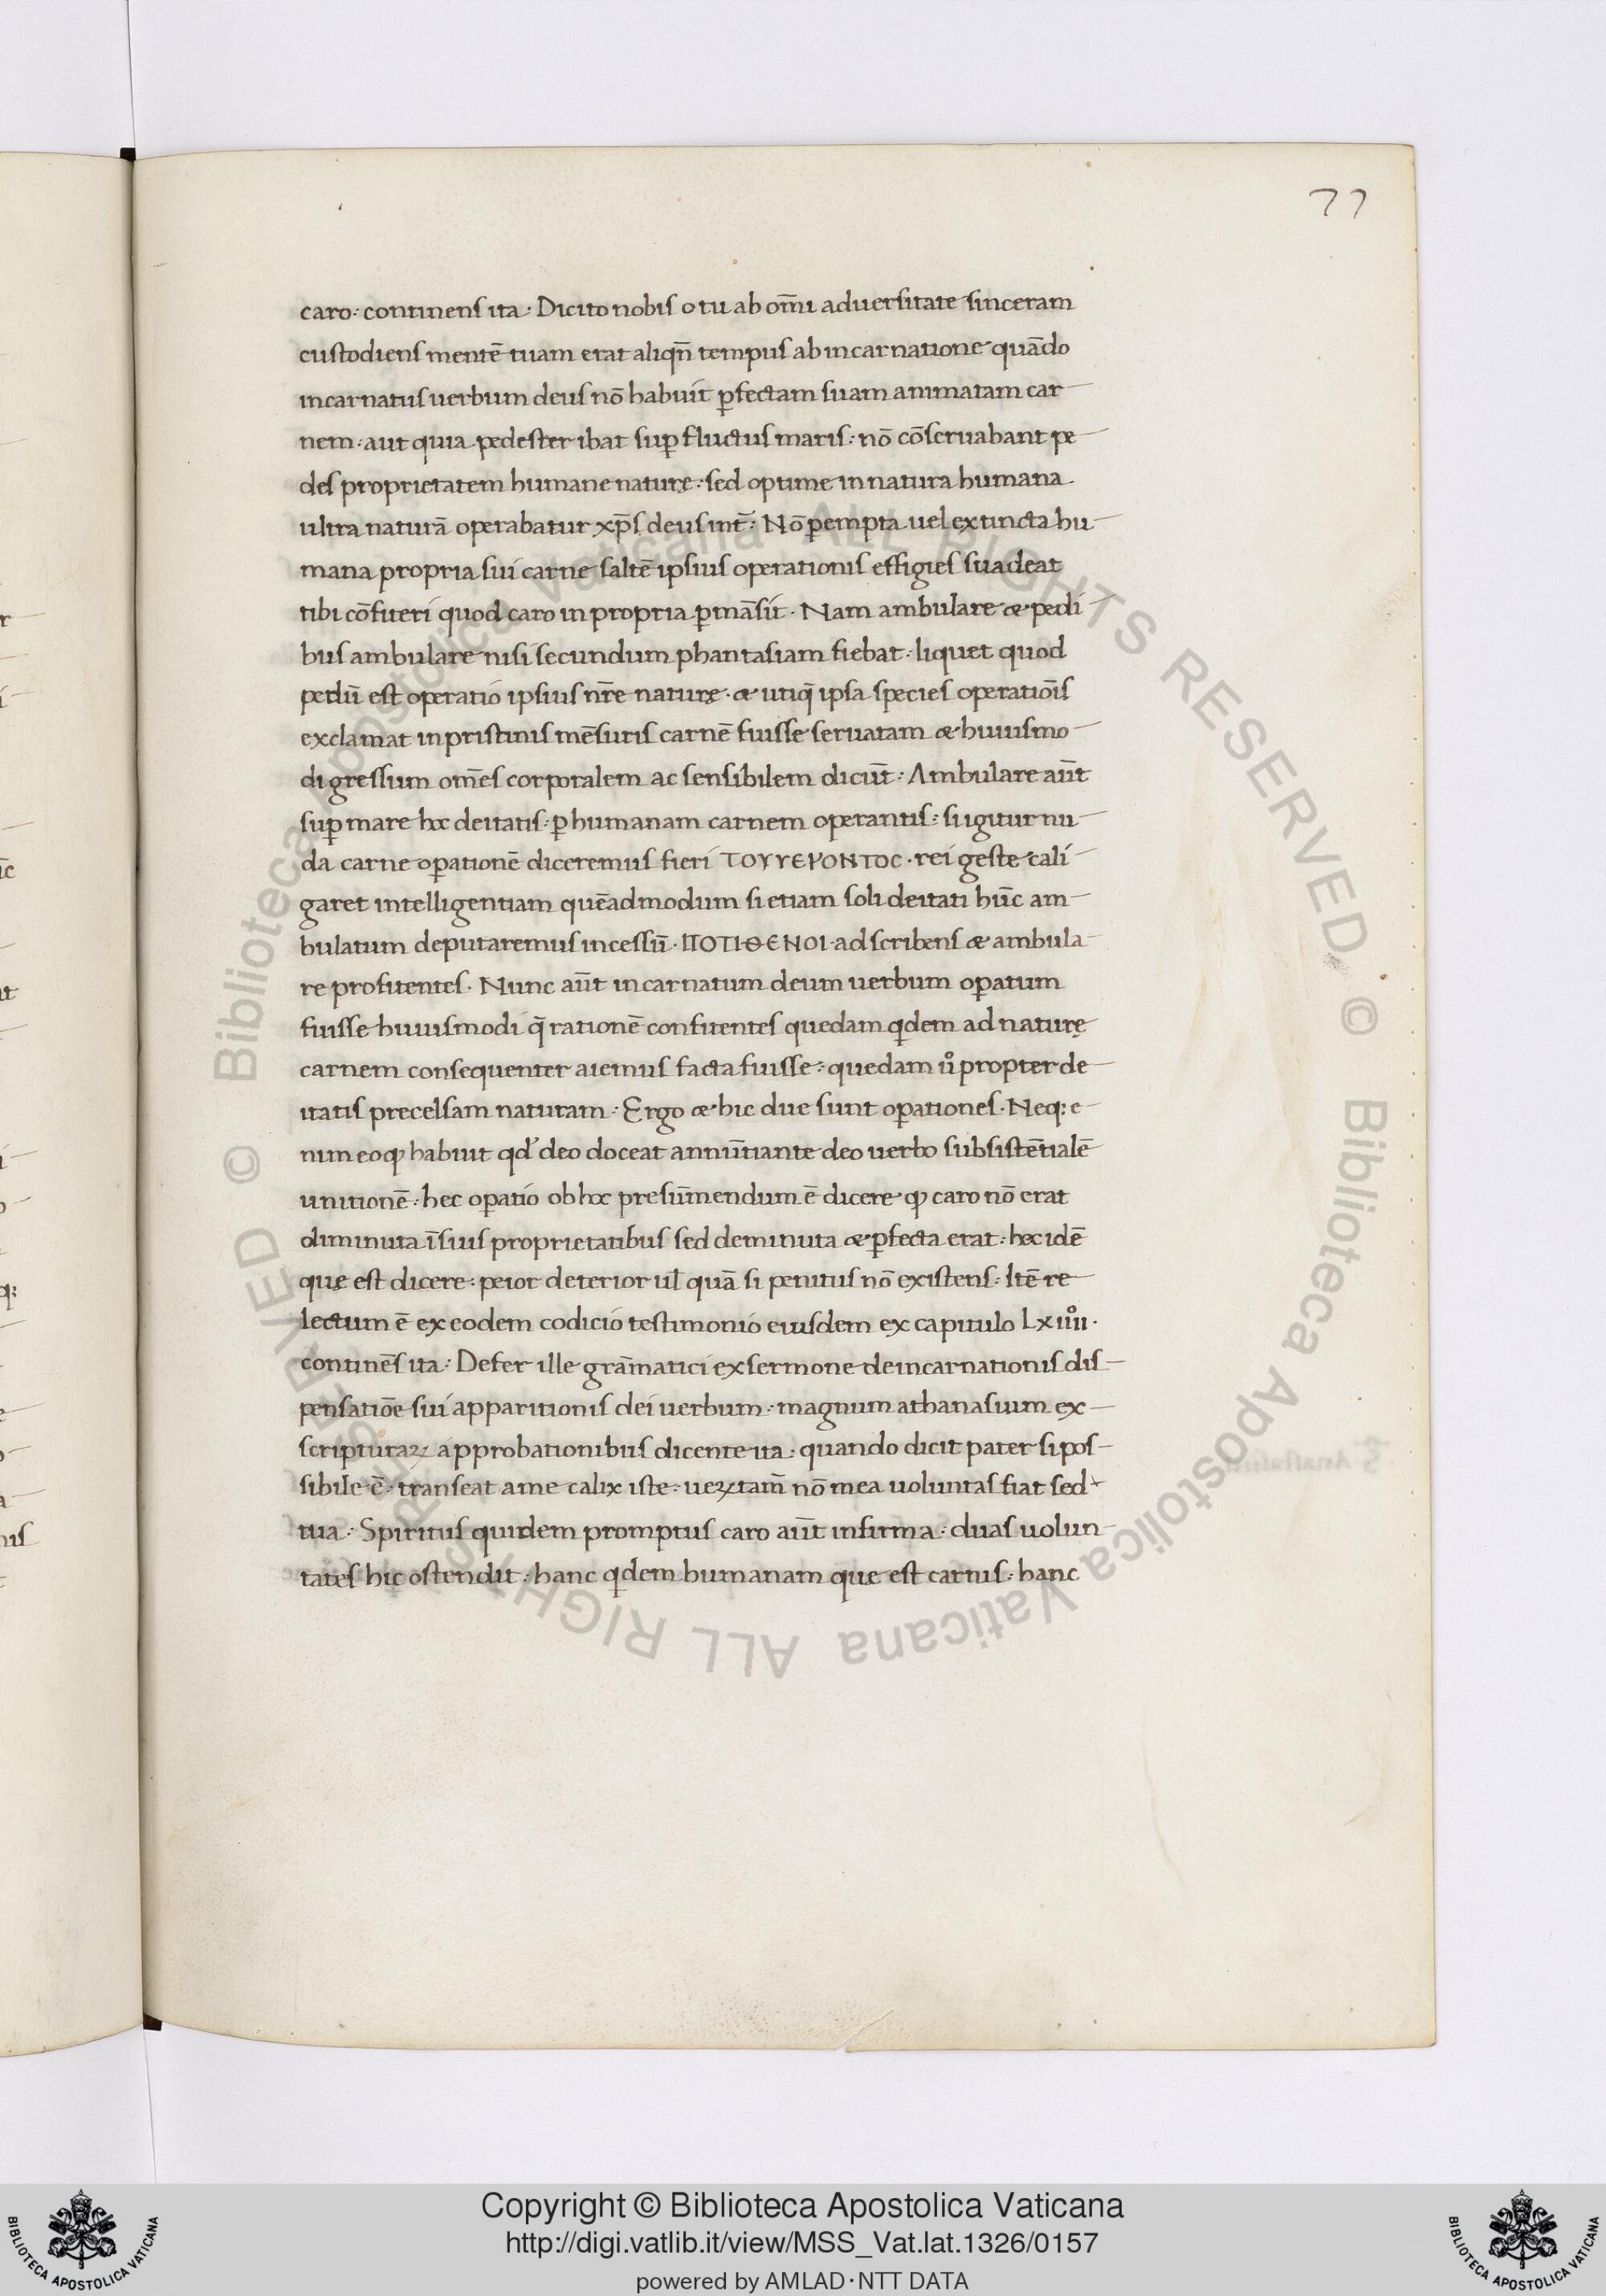 77
caro: continens ita: Dicito nobis o tu ab om̄i aduersitate sinceram
custodiens mentē tuam erat aliqn̄ tempus ab incarnatione quādo
incarnatus uerbum deus nō habuit ꝑfectam suam animatam car
nem: aut quia pedester ibat suꝑ fluctus maris: nō cōseruabant pe
des proprietatem humane naturę: sed optime in natura humana
ultra naturā operabatur xp̄s deus int̄: Nō ꝑempta uel extincta hu
mana propria sui carne saltē ipsius operationis effigies suadeat
tibi cōfiteri quod caro in propria ꝑmāsit. Nam ambulare & pedi
bus ambulare nisi secundum phantasiam fiebat: liquet quod
pedū est operatio ipsius nr̄e naturę. & utiq̄ ipsa species operatiōis
exclamat in pristinis mēsuris carnē fuisse seruatam & huiusmo
di gressum om̄es corporalem ac sensibilem dicūt: Ambulare aūt
suꝑ mare hoc deitatis: ꝑ humanam carnem operantis: si igitur nu
da carne oꝑationē diceremus fieri ΤΟΥ ΥΕΡΟΝΤΟC. rei geste cali
garet intelligentiam quēadmodum si etiam soli deitati hūc am
bulatum deputaremus incessū. ΠΟΤΙΘΕΝΟΙ. ad scribens & ambula
re profitentes. Nunc aūt incarnatum deum uerbum oꝑatum
fuisse huiusmodi q̄ rationē confitentes quedam qdem ad naturę
carnem consequenter aiemus facta fuisse: quedam ů propter de
itatis precelsam naturam: Ergo & hic due sunt oꝑationes. Neq; e
nim eoꝙ habuit qd̓ deo doceat annūtiante deo uerbo subsistētialē
unitionē: hec oꝑatio ob hoc presūmendum ē dicere ꝙ caro nō erat
diminuta ī suis proprietatibus sed deminuta & ꝑfecta erat: hec idē
que est dicere: peior deterior ul̄ quā si penitus nō existens: Itē re
lectum ē ex eodem codicio testimonio eiusdem ex capitulo Lxiiii̊.
continēs ita: Defer ille grāmatici ex sermone de incarnationis dis
pensatiōe sui apparitionis dei uerbum: magnum athanasium ex
scripturaꝝ approbationibus dicente ita: quando dicit pater si pos
sibile ē: transeat a me calix iste: ueꝝtam̄ nō mea uoluntas fiat sed
tua: Spiritus quidem promptus caro aūt infirma: duas uolun
tates hic ostendit: hanc qdem humanam que est carnis: hanc
© Biblioteca Apostolica Vaticana ALL RIGHTS RESERVED © Biblioteca Apostolica Vaticana ALL RIGHTS RESERVED
Copyright © Biblioteca Apostolica Vaticana
http://digi.vatlib.it/view/MSS_Vat.lat.1326/0157
powered by AMLAD·NTT DATA
BIBLIOTECA APOSTOLICA VATICANA
BIBLIOTECA APOSTOLICA VATICANA